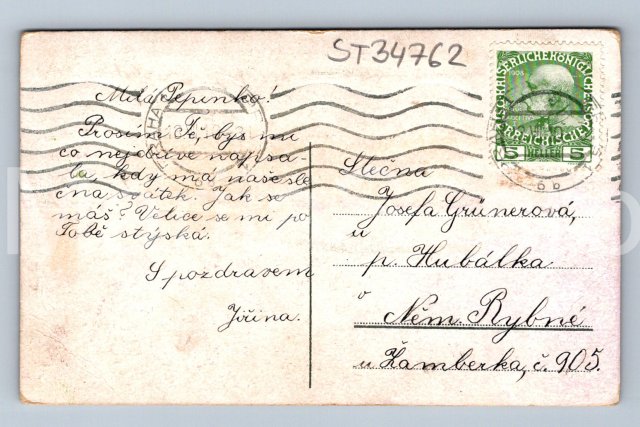 ST34762
Milá Pepinko!
Prosím Tě, bys mi
co nejdříve napsa-
la, kdy má naše sle-
čna svátek. Jak se
máš? Velice se mi po
Tobě stýská.
S pozdravem
Jiřina.
Slečna
Josefa Grünerová,
u
p. Hubálka
v
Něm. Rybné
u Žamberka, č. 905.
KAISERLICHE KÖNIGLICHE
ÖSTERREICHISCHE
1908
5 HELLER 5